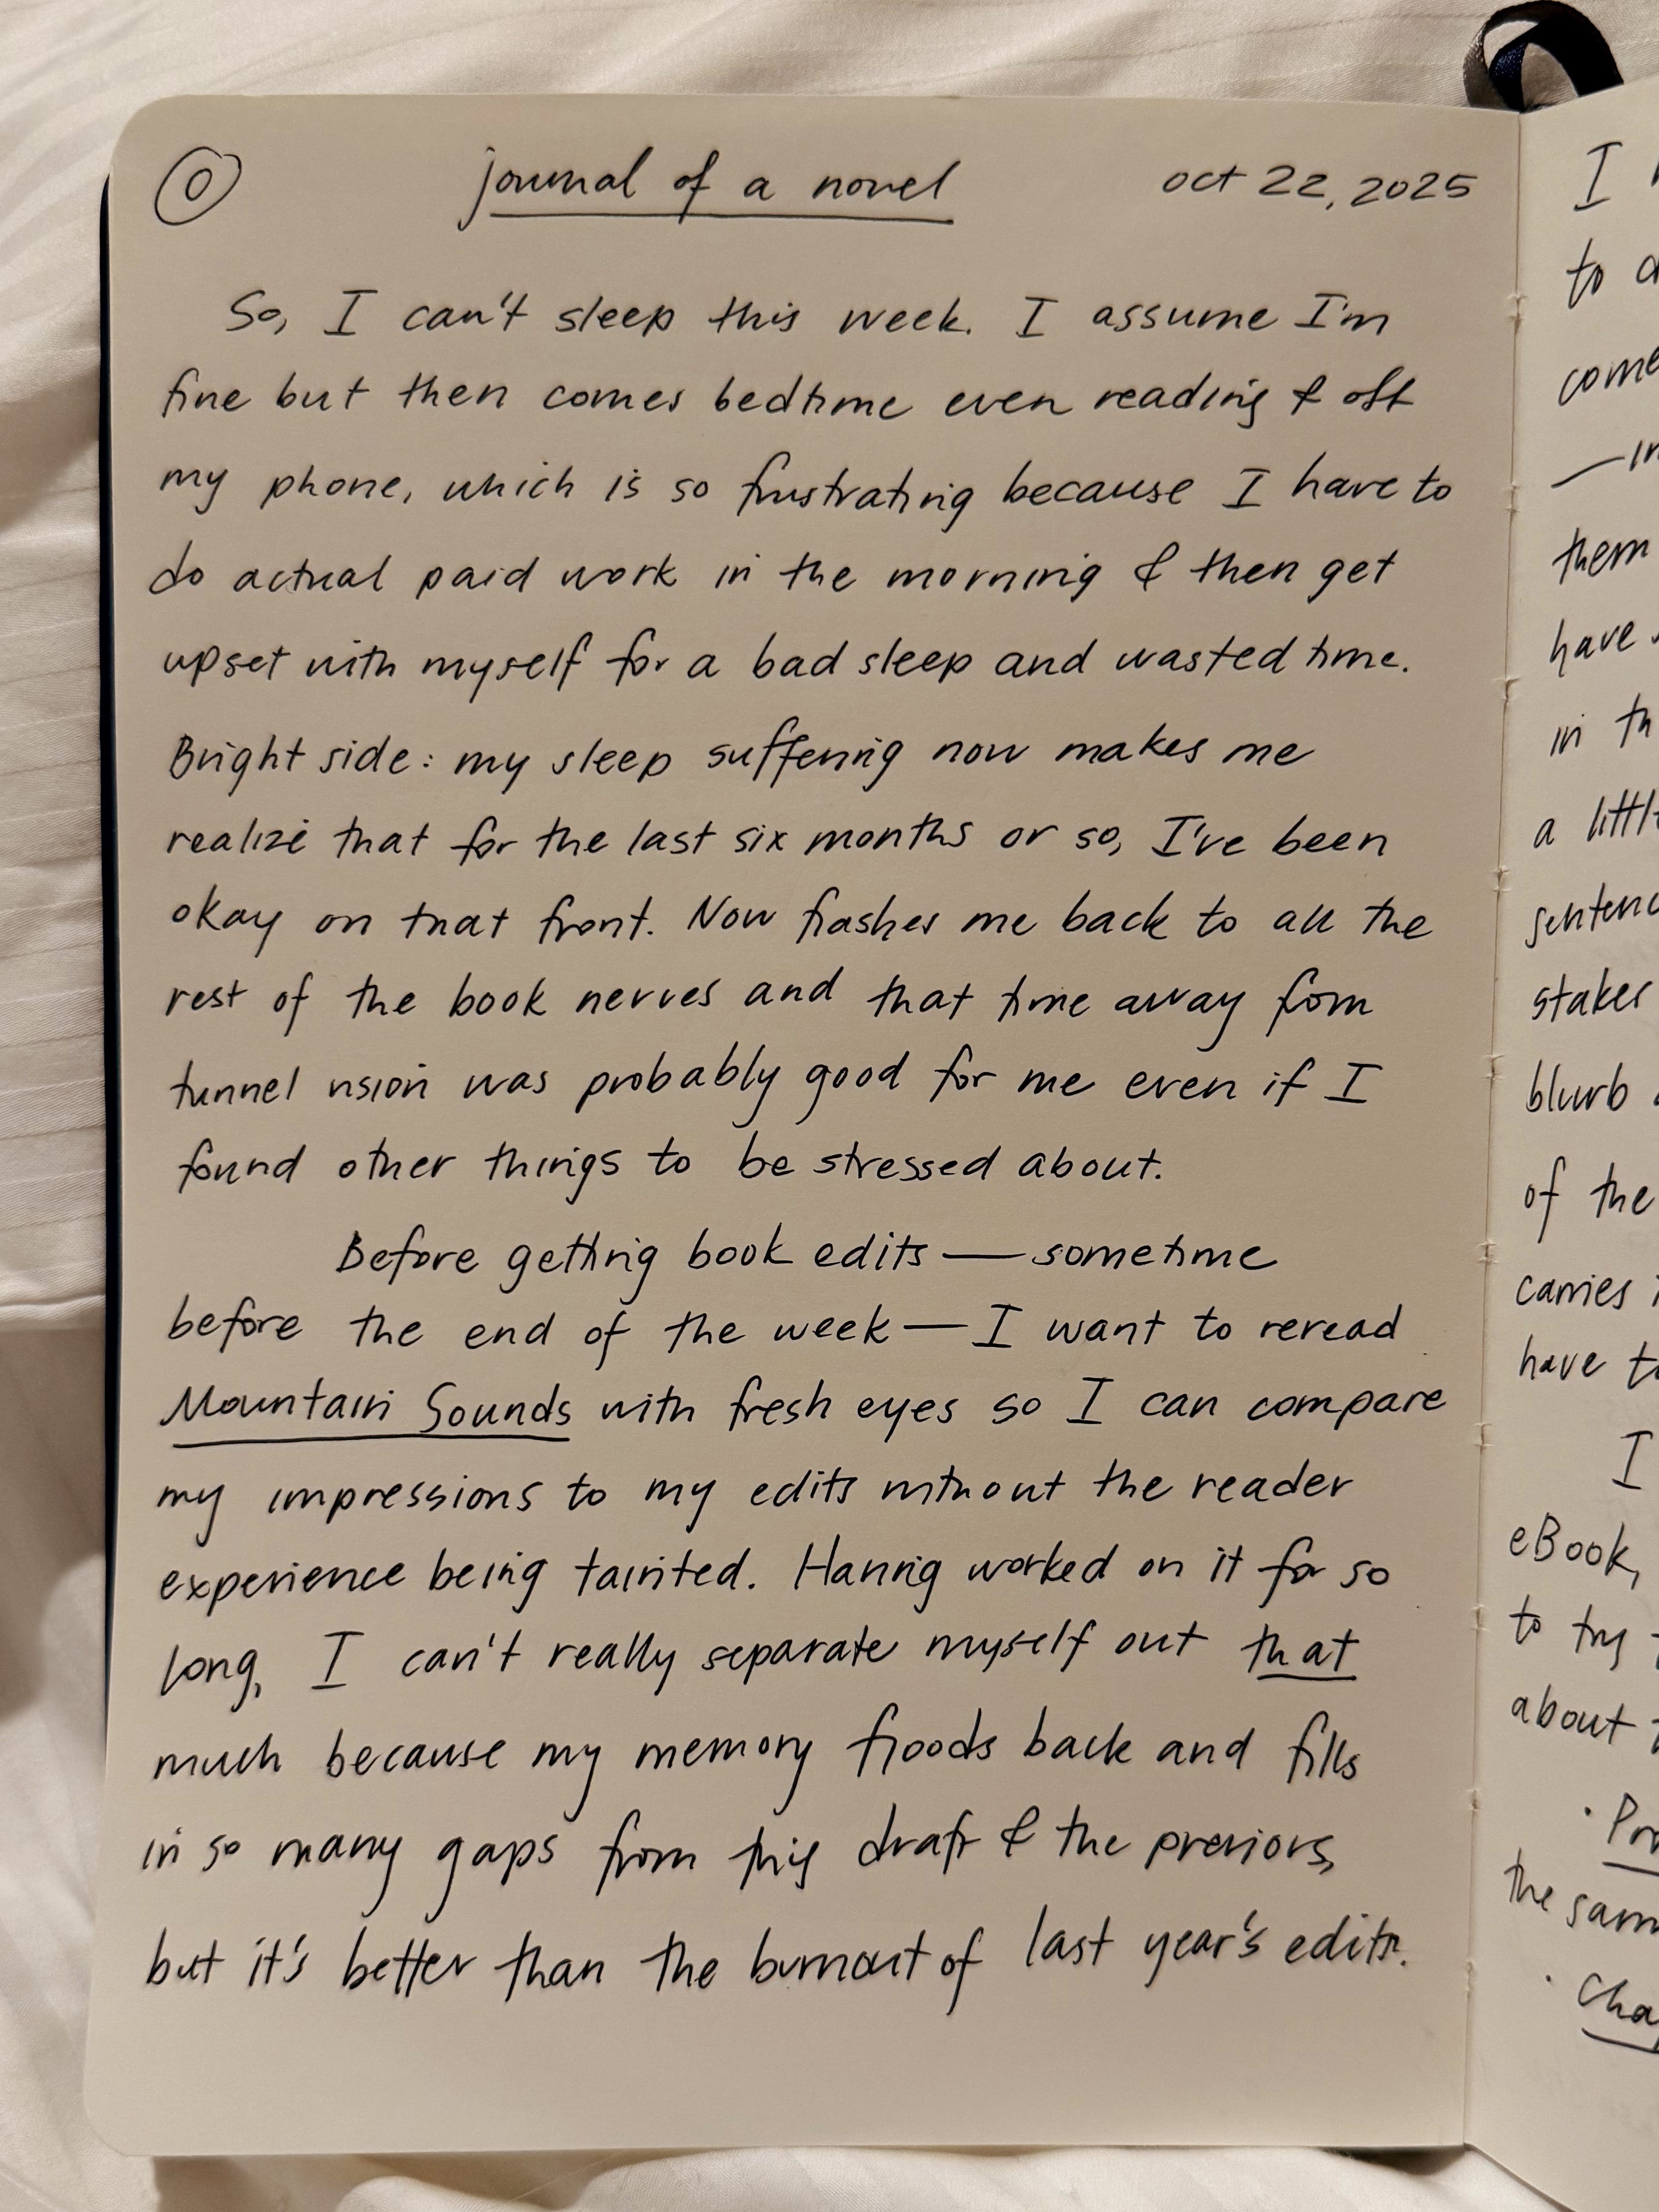 0 journal of a novel oct 22, 2025
So, I can't sleep this week. I assume I'm
fine but then comes bedtime even reading & off
my phone, which is so frustrating because I have to
do actual paid work in the morning & then get
upset with myself for a bad sleep and wasted time.
Bright side: my sleep suffering now makes me
realize that for the last six months or so, I've been
okay on that front. Now flashes me back to all the
rest of the book nerves and that time away from
tunnel vision was probably good for me even if I
found other things to be stressed about.
Before getting book edits — sometime
before the end of the week — I want to reread
Mountain Sounds with fresh eyes so I can compare
my impressions to my edits without the reader
experience being tainted. Having worked on it for so
long, I can't really separate myself out that
much because my memory floods back and fills
in so many gaps from this draft & the previous,
but it's better than the burnout of last year's edits.
I
to
come
— in
them
have
in th
a littl
sentenc
stakes
blurb
of the
carries i
have t
I
eBook,
to try
about
· Pro
the sam
· Cha